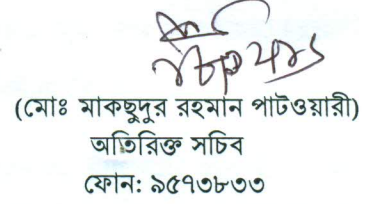 (মোঃ মাকছুদুর রহমান পাটওয়ারী)
অতিরিক্ত সচিব
ফোন: ৯৫৭৩৮৩৩